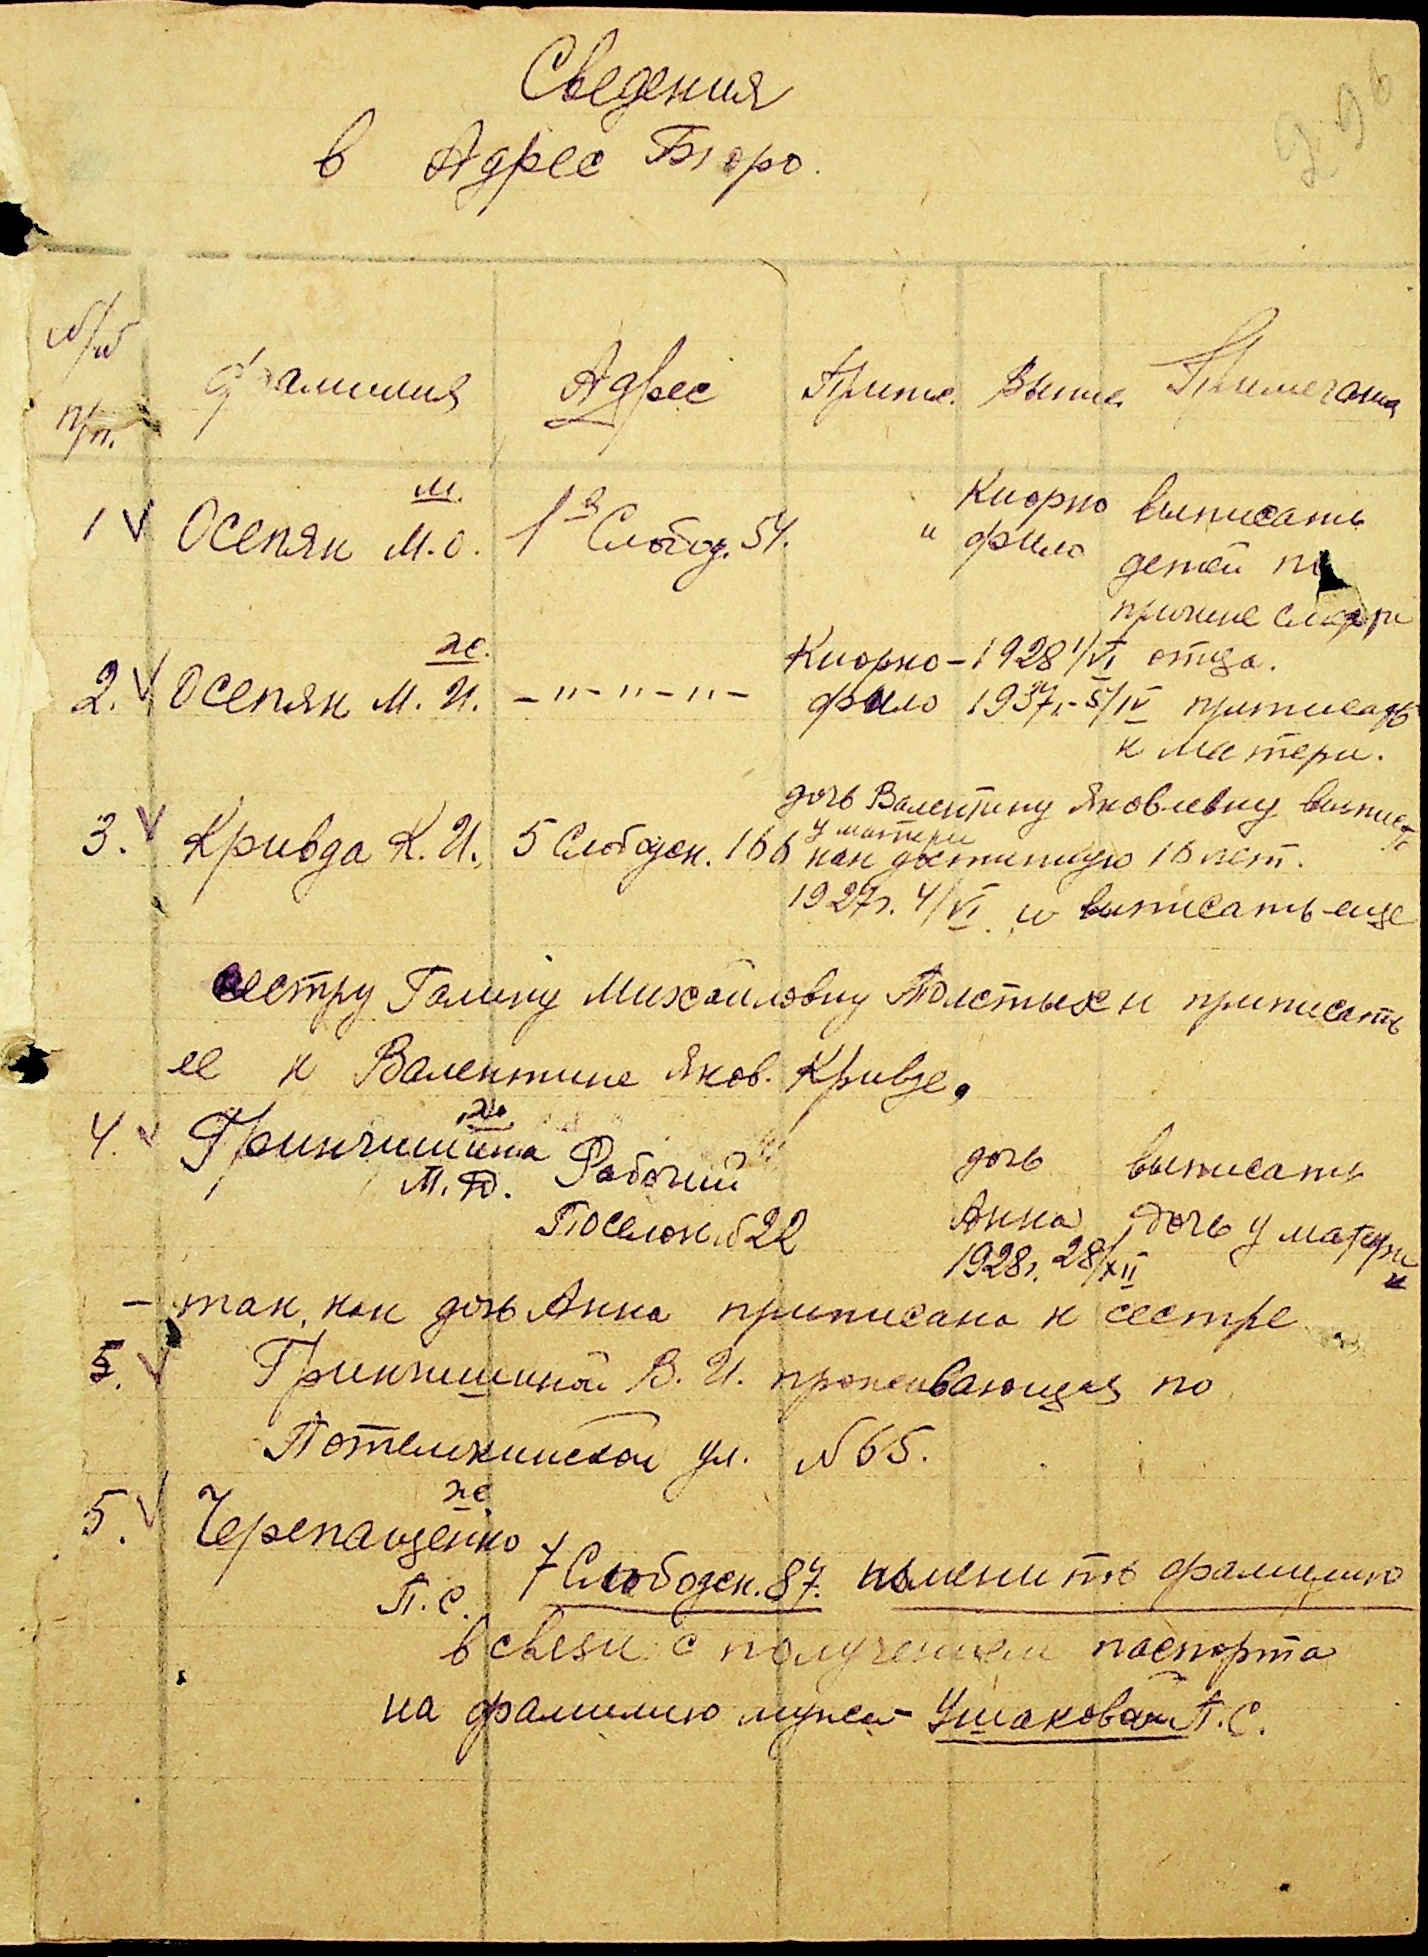 Сведения
в Адрес Бюро.
№/№ п/п. Фамилия Адрес Припис. Выпис. Примечания
м.
1 Осепян М.О. 1я Слобод. 54. " Киорно фило выписать
детей по
причине смерти
отца.
ж.
2. Осепян М. И. – " – " – " – Киорно – 1928 1/VI
фило 1937г. – 5/IV приписать
к матери.
3. Кривда К. И. 5 Слободск. 166 дочь Валентину Яковлевну выписать
у матери
как достигшую 16 лет.
1927г. 4/VI и выписать еще
сестру Галину Михайловну Толстых и приписать
ее к Валентине Яков. Кривде.
ж.
4. Гринчишина М. Рабочий Поселок № 22 дочь Анна 1928г. 28/XII выписать дочь у матери
– так, как дочь Анна приписана к сестре
5. Гринчишиной В. И. проживающая по
Потемкинской ул. № 65.
ж
5. Черепащенко П. С. 7 Слободск. 87. изменить фамилию
в связи с получением паспорта
на фамилию мужа – Ушаковой П. С.